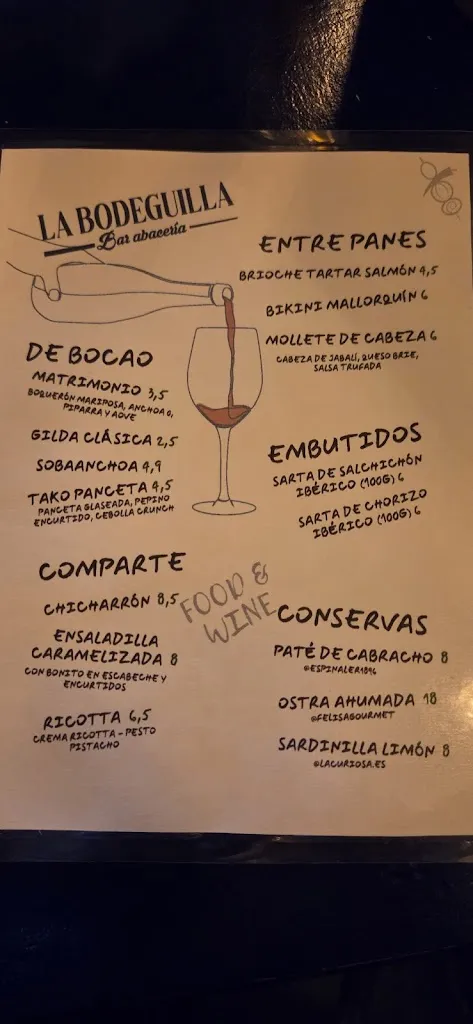 LA BODEGUILLA
Bar abacería
DE BOCAO
MATRIMONIO 3,5
BOQUERÓN MARIPOSA, ANCHOA 0,
PIPARRA Y AOVE
GILDA CLÁSICA 2,5
SOBAANCHOA 4,9
TAKO PANCETA 4,5
PANCETA GLASEADA, PEPINO
ENCURTIDO, CEBOLLA CRUNCH
COMPARTE
CHICHARRÓN 8,5
ENSALADILLA
CARAMELIZADA 8
CON BONITO EN ESCABECHE Y
ENCURTIDOS
RICOTTA 6,5
CREMA RICOTTA - PESTO
PISTACHO
FOOD &
WINE
ENTREPANES
BRIOCHE TARTAR SALMÓN 4,5
BIKINI MALLORQUÍN 6
MOLLETE DE CABEZA 6
CABEZA DE JABALÍ, QUESO BRIE,
SALSA TRUFADA
EMBUTIDOS
SARTA DE SALCHICHÓN
IBÉRICO (100G) 6
SARTA DE CHORIZO
IBÉRICO (100G) 6
CONSERVAS
PATÉ DE CABRACHO 8
@ESPINALER1896
OSTRA AHUMADA 18
@FELISAGOURMET
SARDINILLA LIMÓN 8
@LACURIOSA.ES